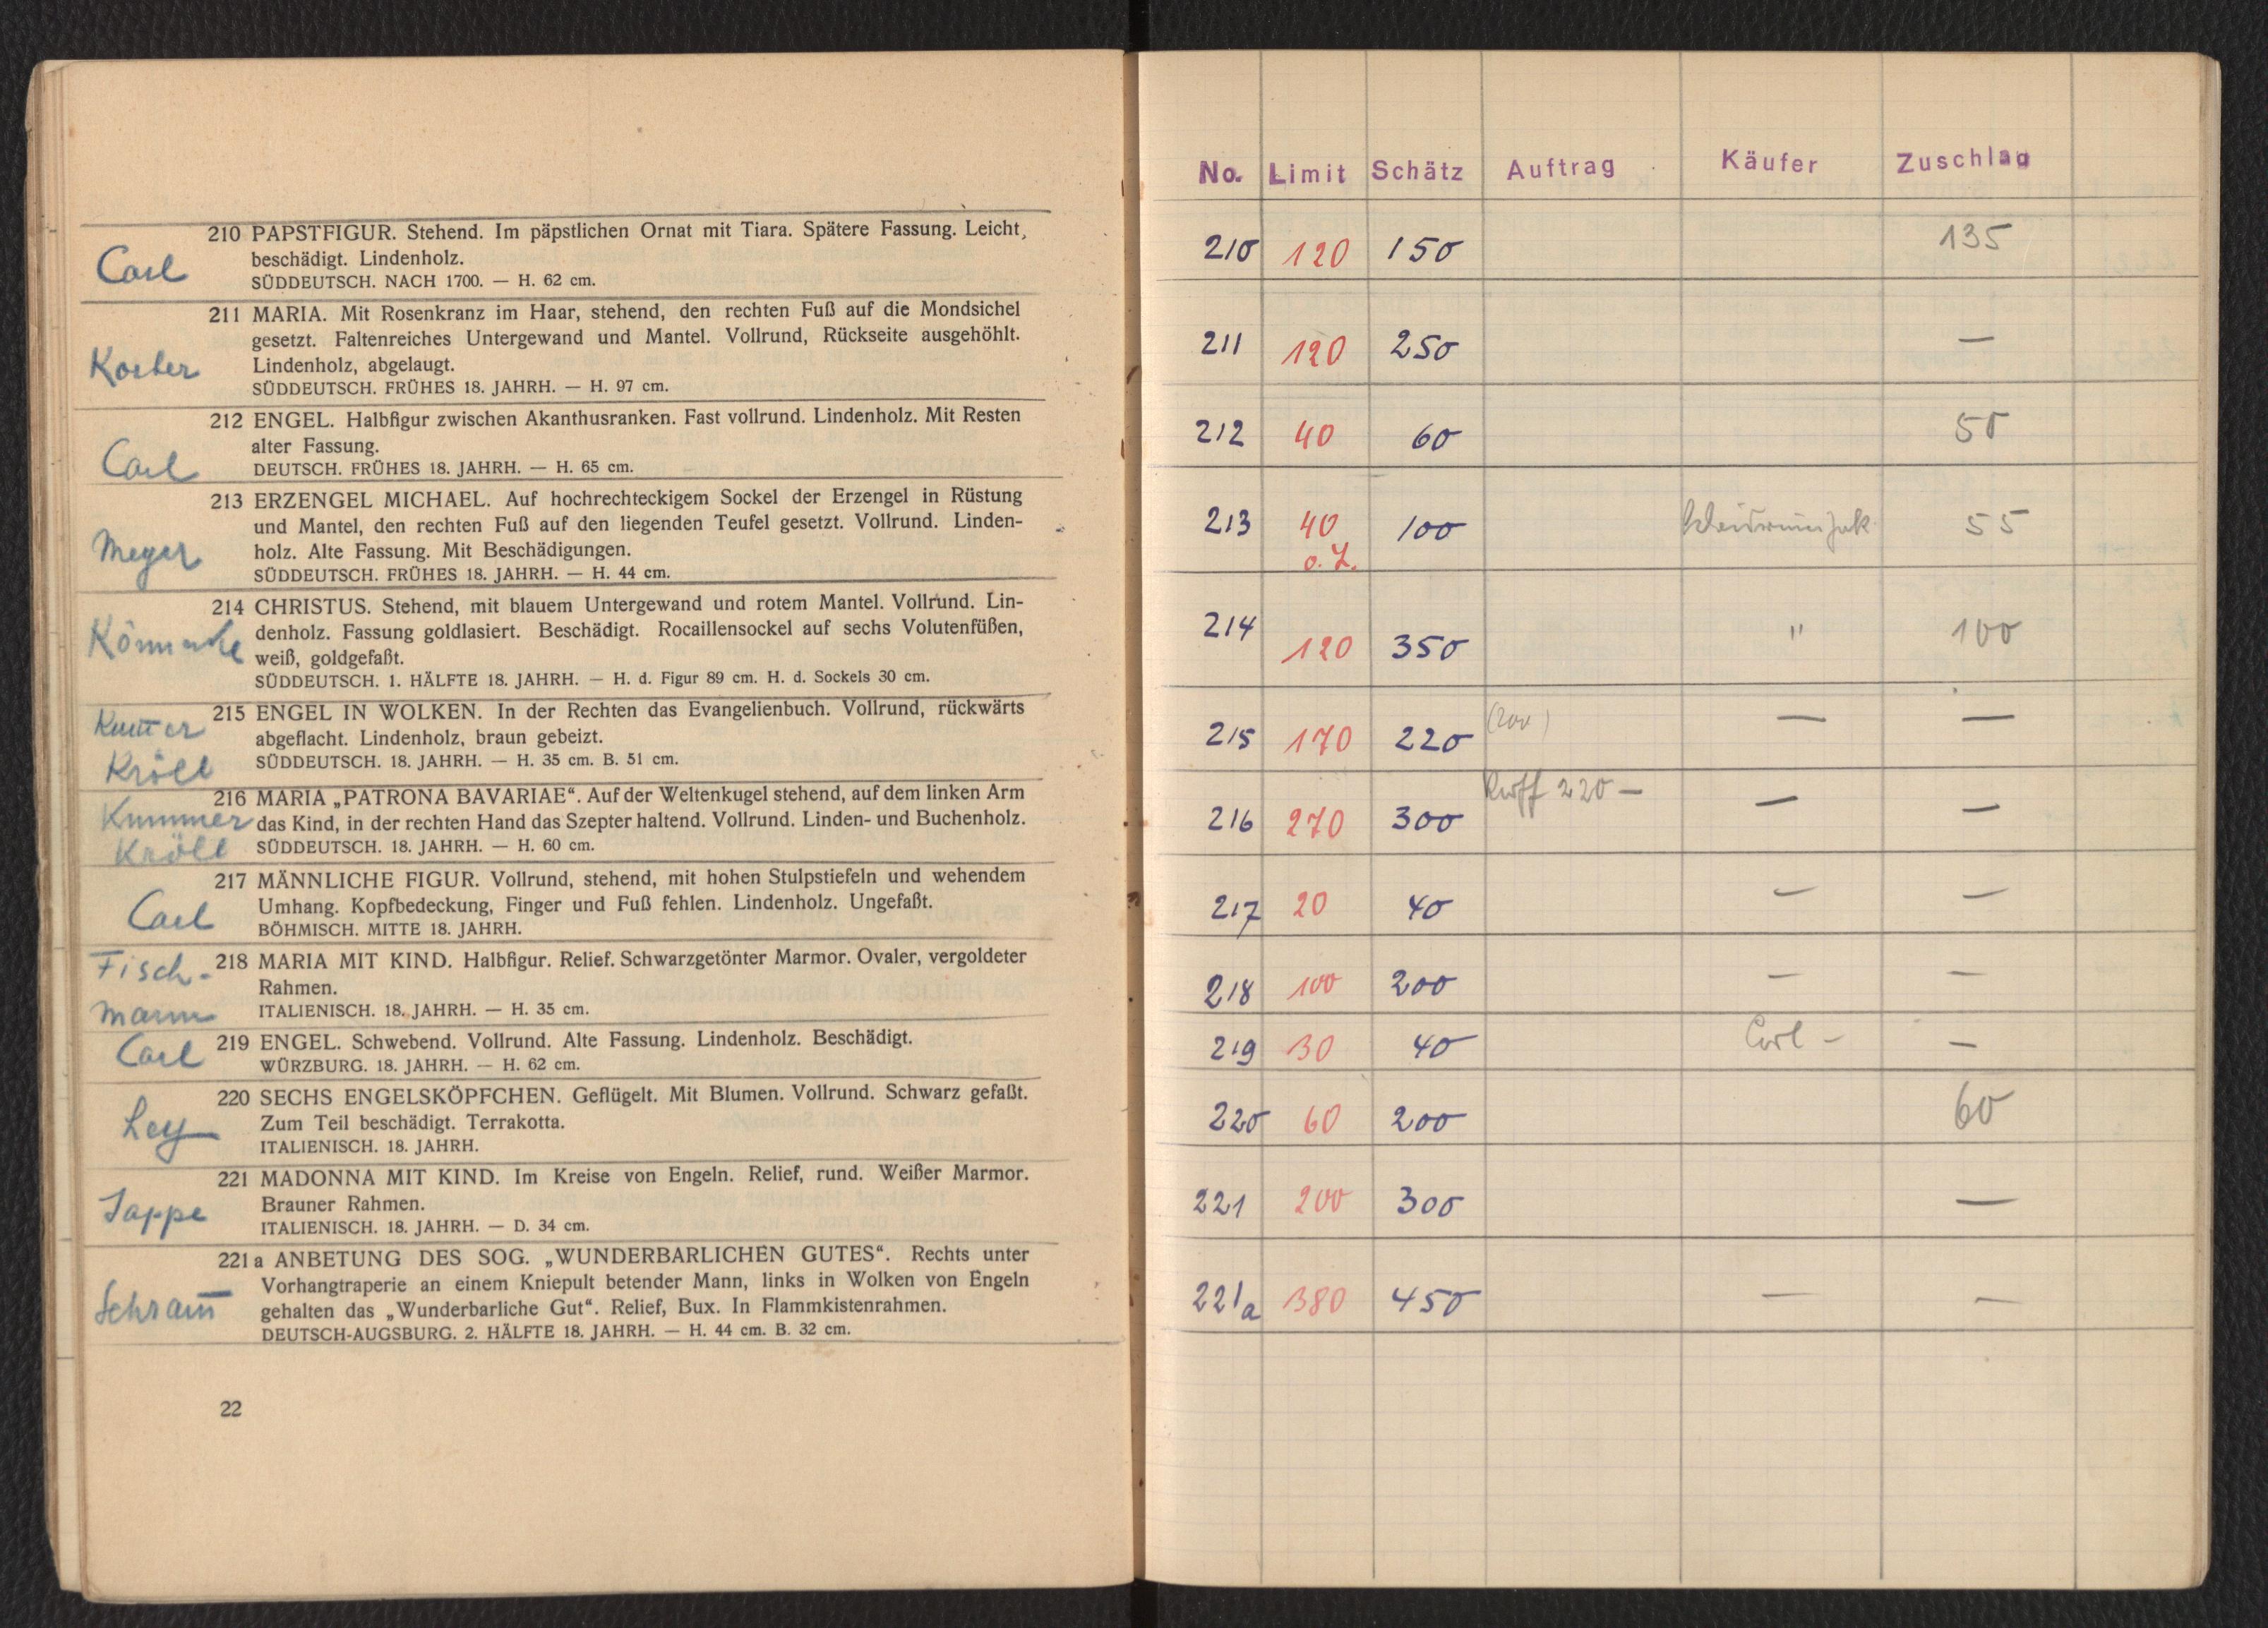 210 PAPSTFIGUR. Stehend. Im päpstlichen Ornat mit Tiara. Spätere Fassung. Leicht
Carl beschädigt. Lindenholz.
SÜDDEUTSCH. NACH 1700. — H. 62 cm.
211 MARIA. Mit Rosenkranz im Haar, stehend, den rechten Fuß auf die Mondsichel
gesetzt. Faltenreiches Untergewand und Mantel. Vollrund, Rückseite ausgehöhlt.
Lindenholz, abgelaugt.
SÜDDEUTSCH. FRÜHES 18. JAHRH. — H. 97 cm.
212 ENGEL. Halbfigur zwischen Akanthusranken. Fast vollrund. Lindenholz. Mit Resten
alter Fassung.
Carl DEUTSCH. FRÜHES 18. JAHRH. — H. 65 cm.
213 ERZENGEL MICHAEL. Auf hochrechteckigem Sockel der Erzengel in Rüstung
und Mantel, den rechten Fuß auf den liegenden Teufel gesetzt. Vollrund. Linden-
Meyer holz. Alte Fassung. Mit Beschädigungen.
SÜDDEUTSCH. FRÜHES 18. JAHRH. — H. 44 cm.
214 CHRISTUS. Stehend, mit blauem Untergewand und rotem Mantel. Vollrund. Lin-
denholz. Fassung goldlasiert. Beschädigt. Rocaillensockel auf sechs Volutenfüßen,
weiß, goldgefaßt.
SÜDDEUTSCH. 1. HÄLFTE 18. JAHRH. — H. d. Figur 89 cm. H. d. Sockels 30 cm.
215 ENGEL IN WOLKEN. In der Rechten das Evangelienbuch. Vollrund, rückwärts
abgeflacht. Lindenholz, braun gebeizt.
Kröll SÜDDEUTSCH. 18. JAHRH. — H. 35 cm. B. 51 cm.
216 MARIA „PATRONA BAVARIAE“. Auf der Weltenkugel stehend, auf dem linken Arm
Kummer das Kind, in der rechten Hand das Szepter haltend. Vollrund. Linden- und Buchenholz.
Kröll SÜDDEUTSCH. 18. JAHRH. — H. 60 cm.
217 MÄNNLICHE FIGUR. Vollrund, stehend, mit hohen Stulpstiefeln und wehendem
Carl Umhang. Kopfbedeckung, Finger und Fuß fehlen. Lindenholz. Ungefaßt.
BÖHMISCH. MITTE 18. JAHRH.
Fisch- 218 MARIA MIT KIND. Halbfigur. Relief. Schwarzgetönter Marmor. Ovaler, vergoldeter
Rahmen.
mann ITALIENISCH. 18. JAHRH. — H. 35 cm.
Carl 219 ENGEL. Schwebend. Vollrund. Alte Fassung. Lindenholz. Beschädigt.
WÜRZBURG. 18. JAHRH. — H. 62 cm.
220 SECHS ENGELSKÖPFCHEN. Geflügelt. Mit Blumen. Vollrund. Schwarz gefaßt.
Ley Zum Teil beschädigt. Terrakotta.
ITALIENISCH. 18. JAHRH.
221 MADONNA MIT KIND. Im Kreise von Engeln. Relief, rund. Weißer Marmor.
Jappe Brauner Rahmen.
ITALIENISCH. 18. JAHRH. — D. 34 cm.
221 a ANBETUNG DES SOG. „WUNDERBARLICHEN GUTES“. Rechts unter
Vorhangtraperie an einem Kniepult betender Mann, links in Wolken von Engeln
Schram̄ gehalten das „Wunderbarliche Gut“. Relief, Bux. In Flammkistenrahmen.
DEUTSCH-AUGSBURG. 2. HÄLFTE 18. JAHRH. — H. 44 cm. B. 32 cm.
22
No. Limit Schätz Auftrag Käufer Zuschlag
210 120 150 135
211 120 250 —
212 40 60 50
213 40 100 55
o. L.
214 120 350 " 100
215 170 220 (200) — —
216 270 300 220 — — —
217 20 40 — —
218 100 200 — —
219 30 40 Carl — —
220 60 200 60
221 200 300 —
221a 380 450 — —